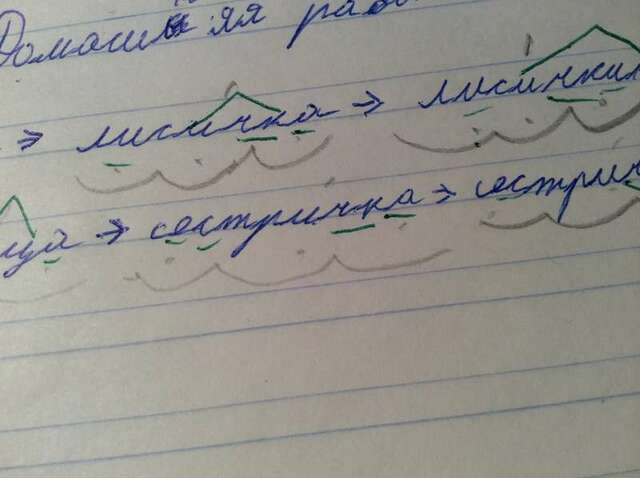 Домашняя рабо
⇒ лисичка → лисичкин
ица → сестричка → сестрич